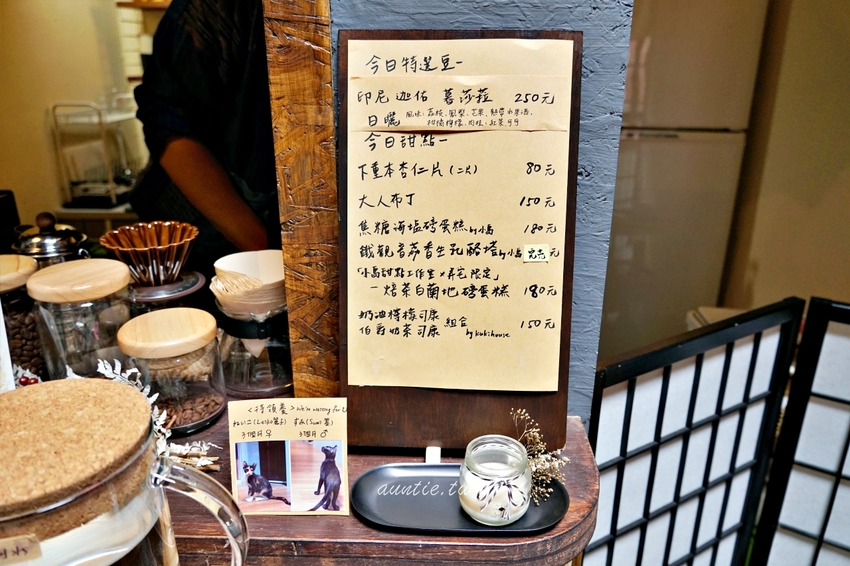 今日特選豆-
印尼 迦佑 慕莎菈 250元
日曬 風味：荔枝、鳳梨、芒果、熱帶水果酒、
柑橘檸檬、肉桂、紅茶
今日甜點-
下重本杏仁片(二片) 80元
大人布丁 150元
焦糖海塩磅蛋糕 by小島 180元
鐵觀音荔香生乳酪塔 by小島 完売 元
「小島甜點工作室×壽宅限定」
-焙茶白蘭地磅蛋糕 180元
奶油檸檬司康
伯爵奶茶司康 組合 150元
by kukihouse
<待領養> We're waiting for U
3個月♀ 3個月♂
auntie.tw